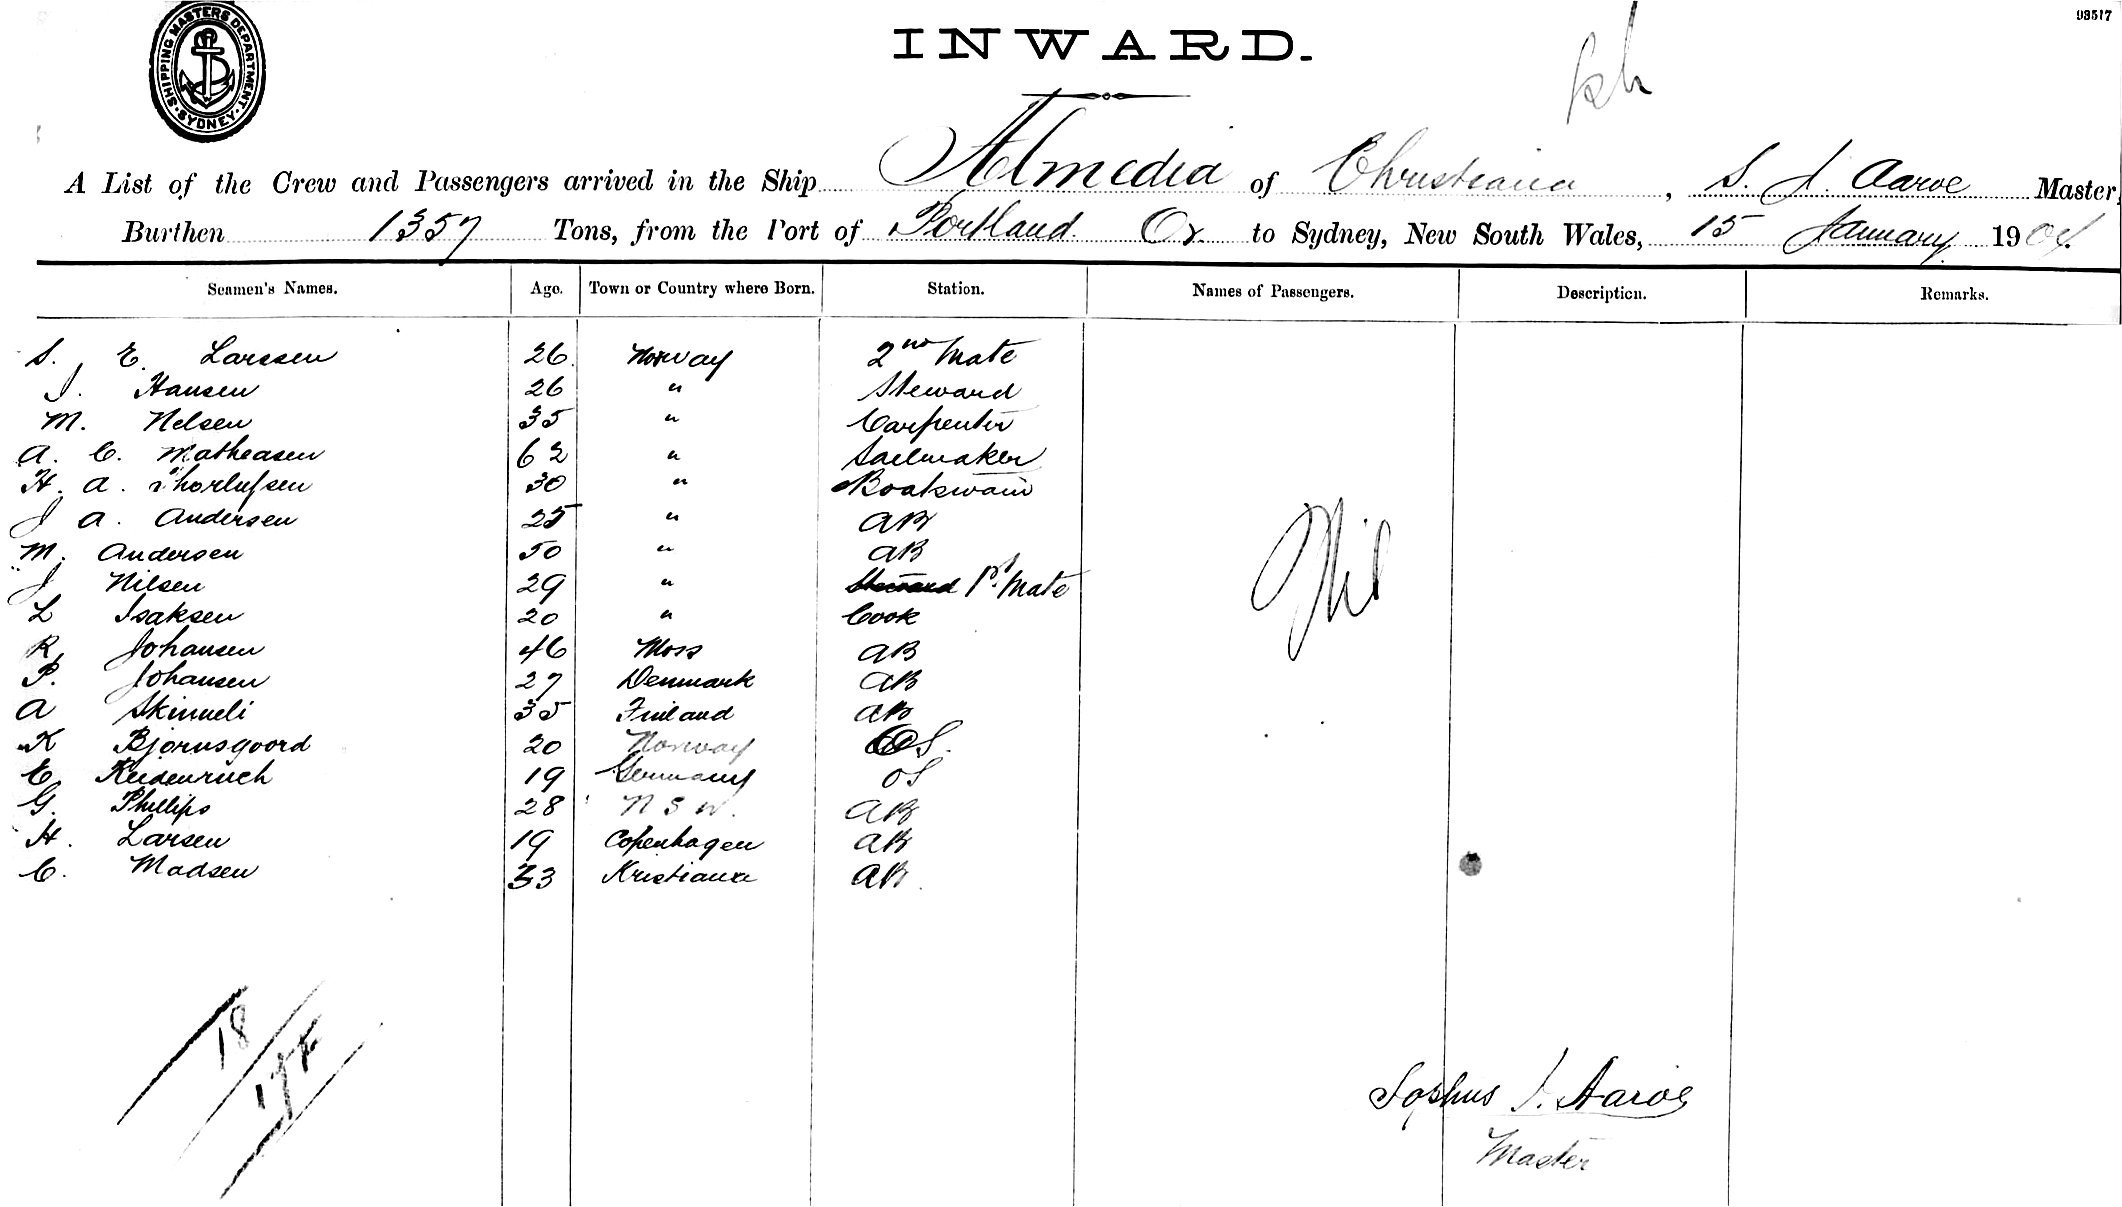 93517
SHIPPING MASTERS DEPARTMENT. SYDNEY.
INWARD.
A List of the Crew and Passengers arrived in the Ship Almedia of Christiania, S. J. Aaroe Master,
Burthen 1357 Tons, from the Port of Portland Or. to Sydney, New South Wales, 15 January 1904.
Seamen's Names. Age. Town or Country where Born. Station. Names of Passengers. Description. Remarks.
S. E. Larssen 26 Norway 2nd Mate
J. Hansen 26 " Steward
M. Nelsen 35 " Carpenter
A. C. Matheasen 62 " Sailmaker
H. A. Thorlufsen 30 " Boatswain
J A. Andersen 25 " AB
M. Andersen 50 " AB
J Nilsen 29 " Steward 1st Mate
L Isaksen 20 " Cook
Nil
R Johansen 46 Moss AB
P. Johansen 27 Denmark AB
A Skinneli 35 Finland AB
K Bjornsgoord 20 Norway OS.
E. Keidenruch 19 Germany OS
G. Phillips 28 N S W. AB
H. Larsen 19 Copenhagen AB
C. Madsen 33 Kristiania AB.
18
Sophus J. Aaroe
Master